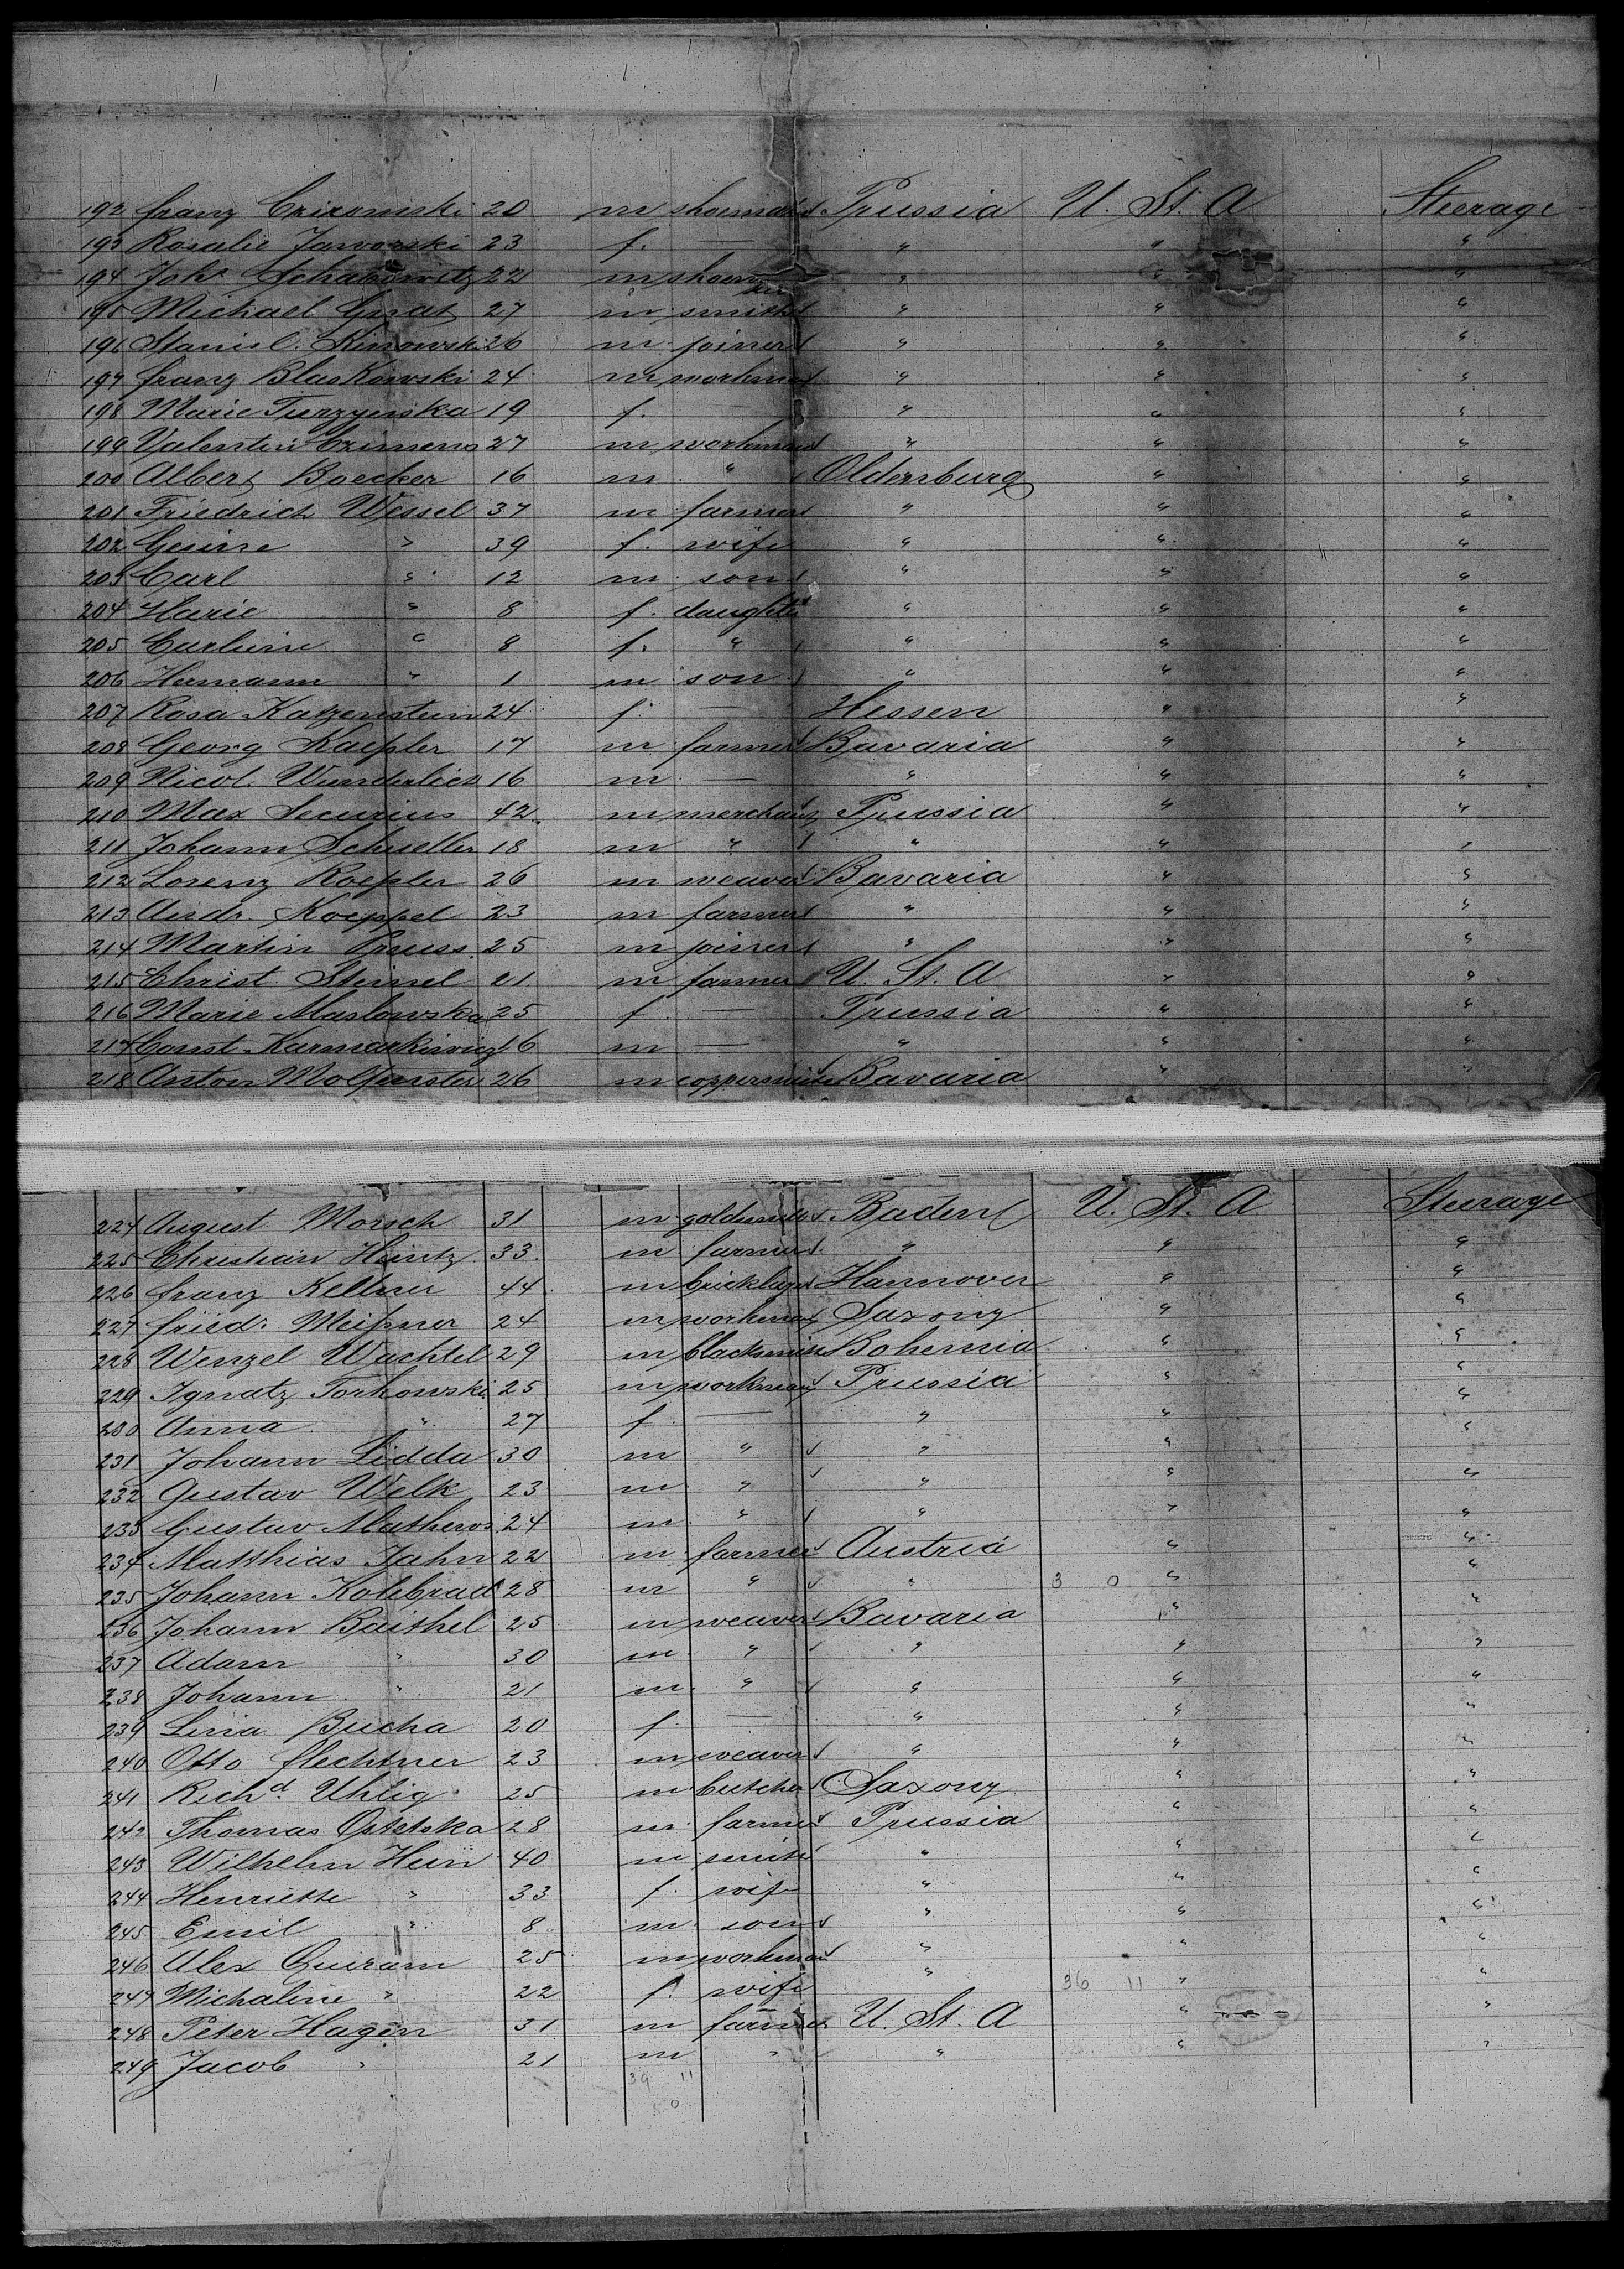 192 Franz Czizomski 20 m shoemaker Prussia U. St. A Steerage
193 Rosalie Jaworski 23 f. — " " "
194 Joh. Schabowitz 22 m shoemaker " " "
195 Michael Gnat 27 m smith " " "
196 Stanisl. Kinowski 26 m joiner " " "
197 Franz Blaskowski 24 m workman " " "
198 Marie Turzynska 19 f. — " " "
199 Valentin 27 m workman " " "
200 Albert Boecker 16 m " Oldenburg " "
201 Friedrich Wessel 37 m farmer " " "
202 Gesine " 39 f. wife " " "
203 Carl " 12 m son " " "
204 Marie " 8 f. daughter " " "
205 Carline " 8 f. " " " "
206 Hermann " 1 m son " " "
207 Rosa Katzenstein 24 f. — Hessen " "
208 Georg Kaepler 17 m farmer Bavaria " "
209 Nicol. Wunderlich 16 m — " " "
210 Max Securius 42 m merchant Prussia " "
211 Johann Schueller 18 m " " " "
212 Lorenz Koepler 26 m weaver Bavaria " "
213 Andr. Koeppel 23 m farmer " " "
214 Martin Preuss 25 m joiner " " "
215 Christ. Steinel 21 m farmer U. St. A " "
216 Marie Maslowska 25 f — Prussia " "
217 Const. Karmarkiewicz 16 m — " " "
218 Anton Wolfenstein 26 m coppersmith Bavaria " "
224 August Morsch 31 m goldsmith Baden U. St. A Steerage
225 Christian Heintz 33 m farmer " " "
226 Franz Kellner 44 m bricklayer Hannover " "
227 Friedr. Meißner 24 m workman Saxony " "
228 Wenzel Wachtel 29 m blacksmith Bohemia " "
229 Ignatz Torkowski 25 m workman Prussia " "
230 Anna " 27 f — " " "
231 Johann Lidda 30 m " " " "
232 Gustav Welk 23 m " " " "
233 Gustav Matheros 24 m " " " "
234 Matthias Jahn 22 m farmer Austria " "
235 Johann Kolebrad 28 m " " 3 0 " "
236 Johann Baithel 25 m weaver Bavaria " "
237 Adam " 30 m " " " "
238 Johann " 21 m " " " "
239 Lina Bucha 20 f. — " " "
240 Otto Flechtner 23 m weaver " " "
241 Richd. Uhlig 25 m butcher Saxony " "
242 Thomas Ostetska 28 m farmer Prussia " "
243 Wilhelm Hein 40 m smith " " "
244 Henriette " 33 f. wife " " "
245 Emil " 8 m son " " "
246 Alex Quiram 25 m workman " " "
247 Michaline " 22 f. wife " 36 11 " "
248 Peter Hagen 31 m farmer U. St. A " "
249 Jacob " 21 m " " " "
39 11
0